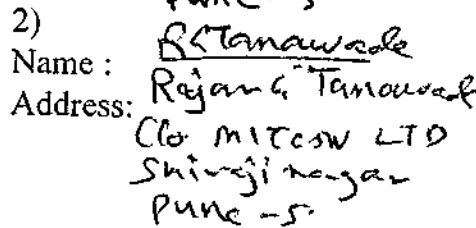 Pune - 5
2)
RGTanawade
Name :
Address: Rajan G. Tanawade
C/o MITCON LTD
Shivaji nagar
Pune - 5.